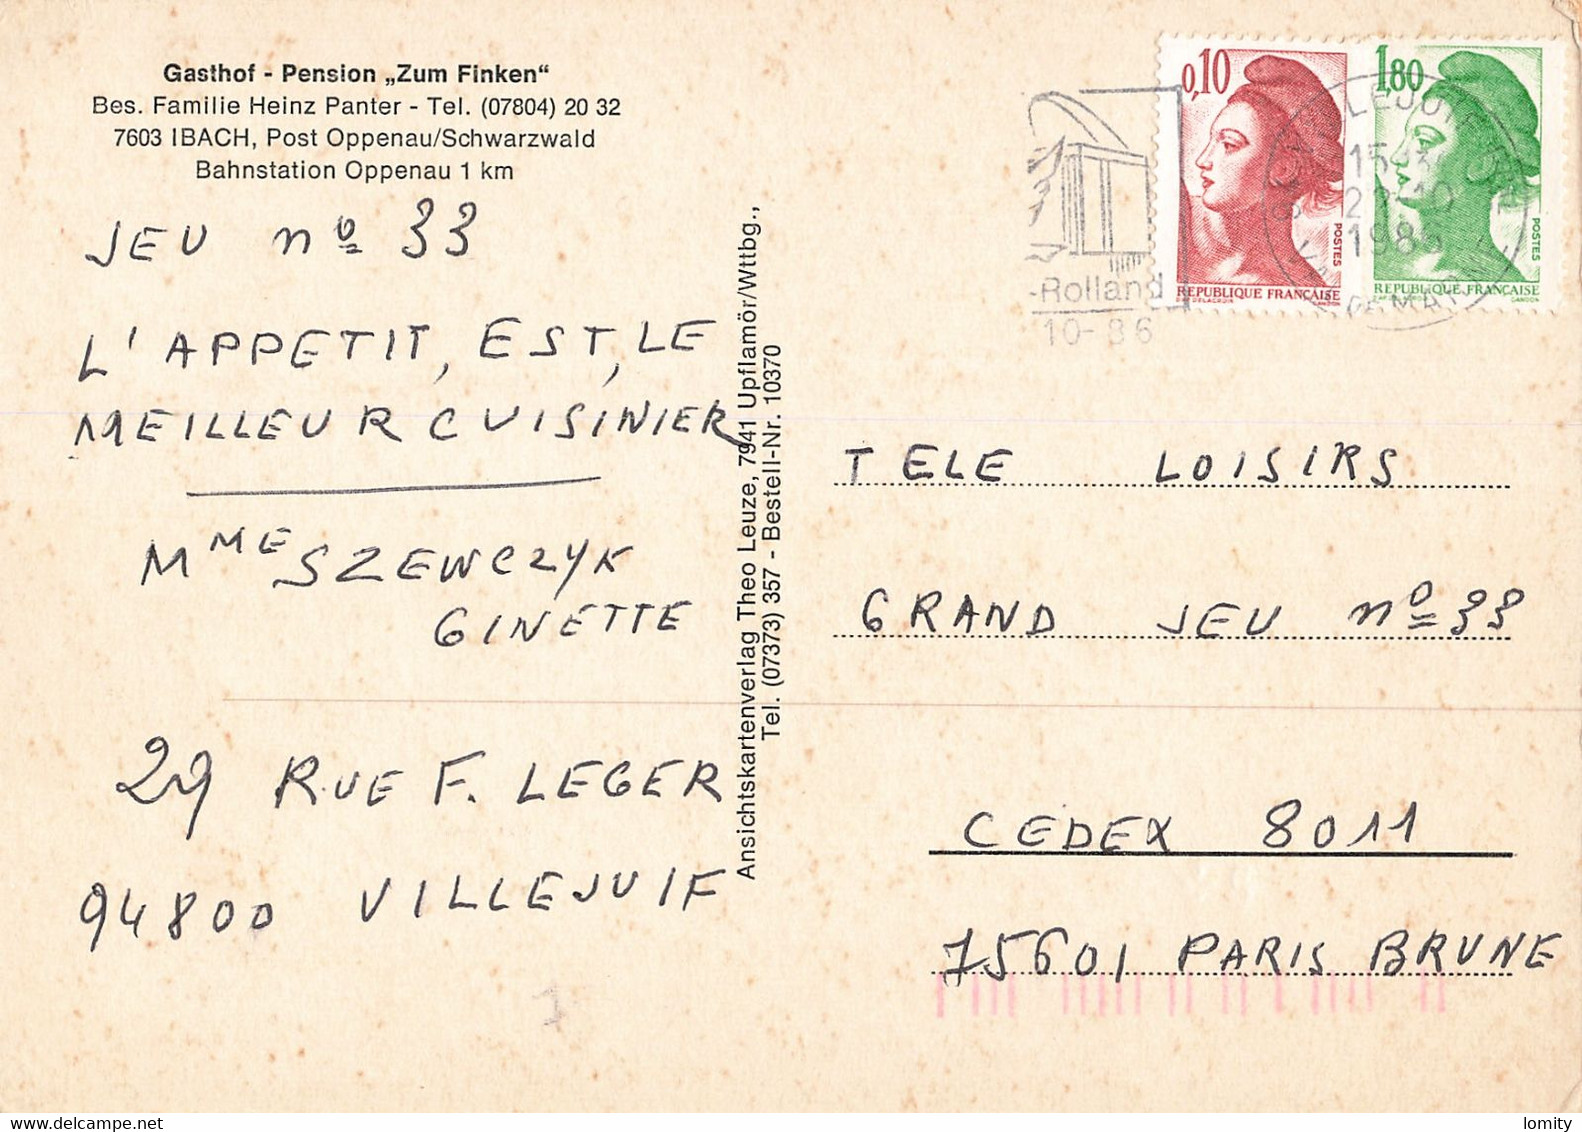 Gasthof - Pension „Zum Finken“
Bes. Familie Heinz Panter - Tel. (07804) 20 32
7603 IBACH, Post Oppenau/Schwarzwald
Bahnstation Oppenau 1 km
JEU nº 33
L'APPETIT, EST, LE
MEILLEUR CUISINIER
Mme SZEWCZYK
GINETTE
29 RUE F. LEGER
94800 VILLEJUIF
Ansichtskartenverlag Theo Leuze, 7941 Upflamör/Wttbg.,
Tel. (07373) 357 - Bestell-Nr. 10370
0,10
POSTES
REPUBLIQUE FRANÇAISE
1,80
POSTES
REPUBLIQUE FRANÇAISE
-Rolland
10-86
1986
TELE LOISIRS
GRAND JEU nº 33
CEDEX 8011
75601 PARIS BRUNE
lomity